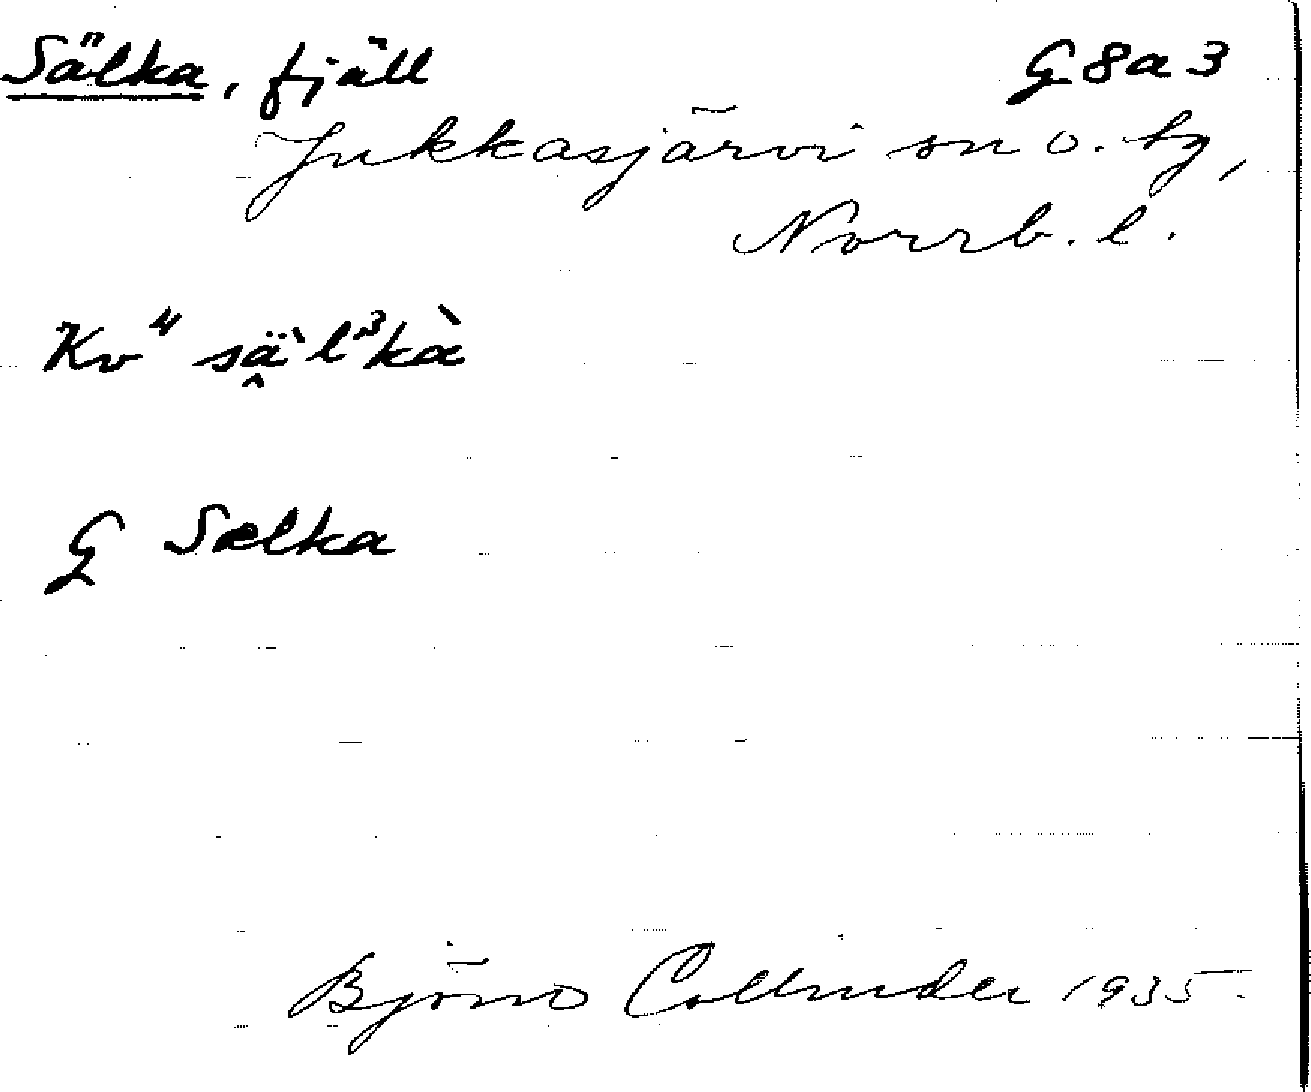 Sälka, fjäll G8a3
Jukkasjärvi sn o. tg,
Norrb. l.
Kv
G Sælka
Björn Collinder 1935.